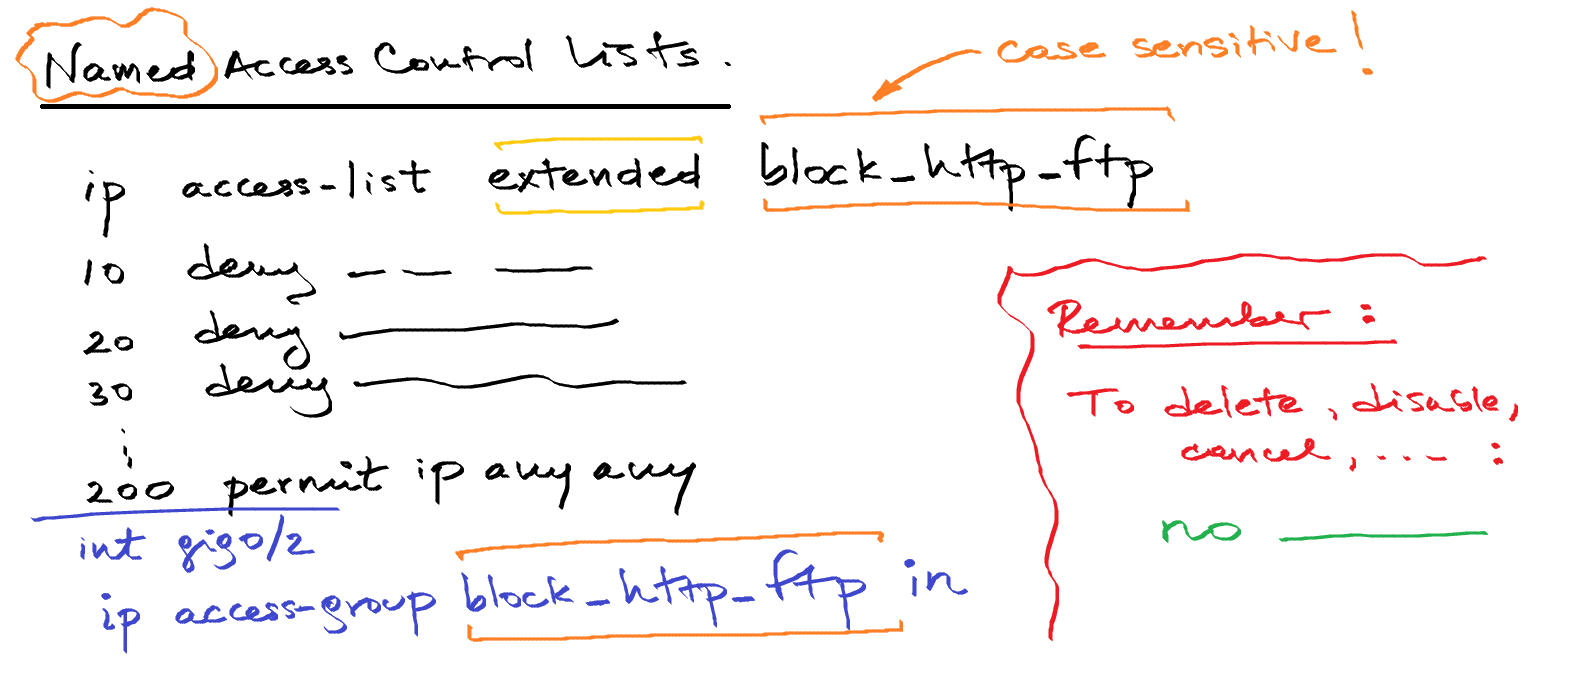 Named Access Control Lists.
case sensitive!
ip access-list extended block_http_ftp
10 deny
20 deny
30 deny
200 permit ip any any
int gig0/2
ip access-group block_http_ftp in
Remember:
To delete, disable,
cancel, ... :
no